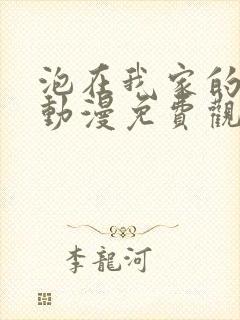 泡在我家的
動漫免費觀
李龍河